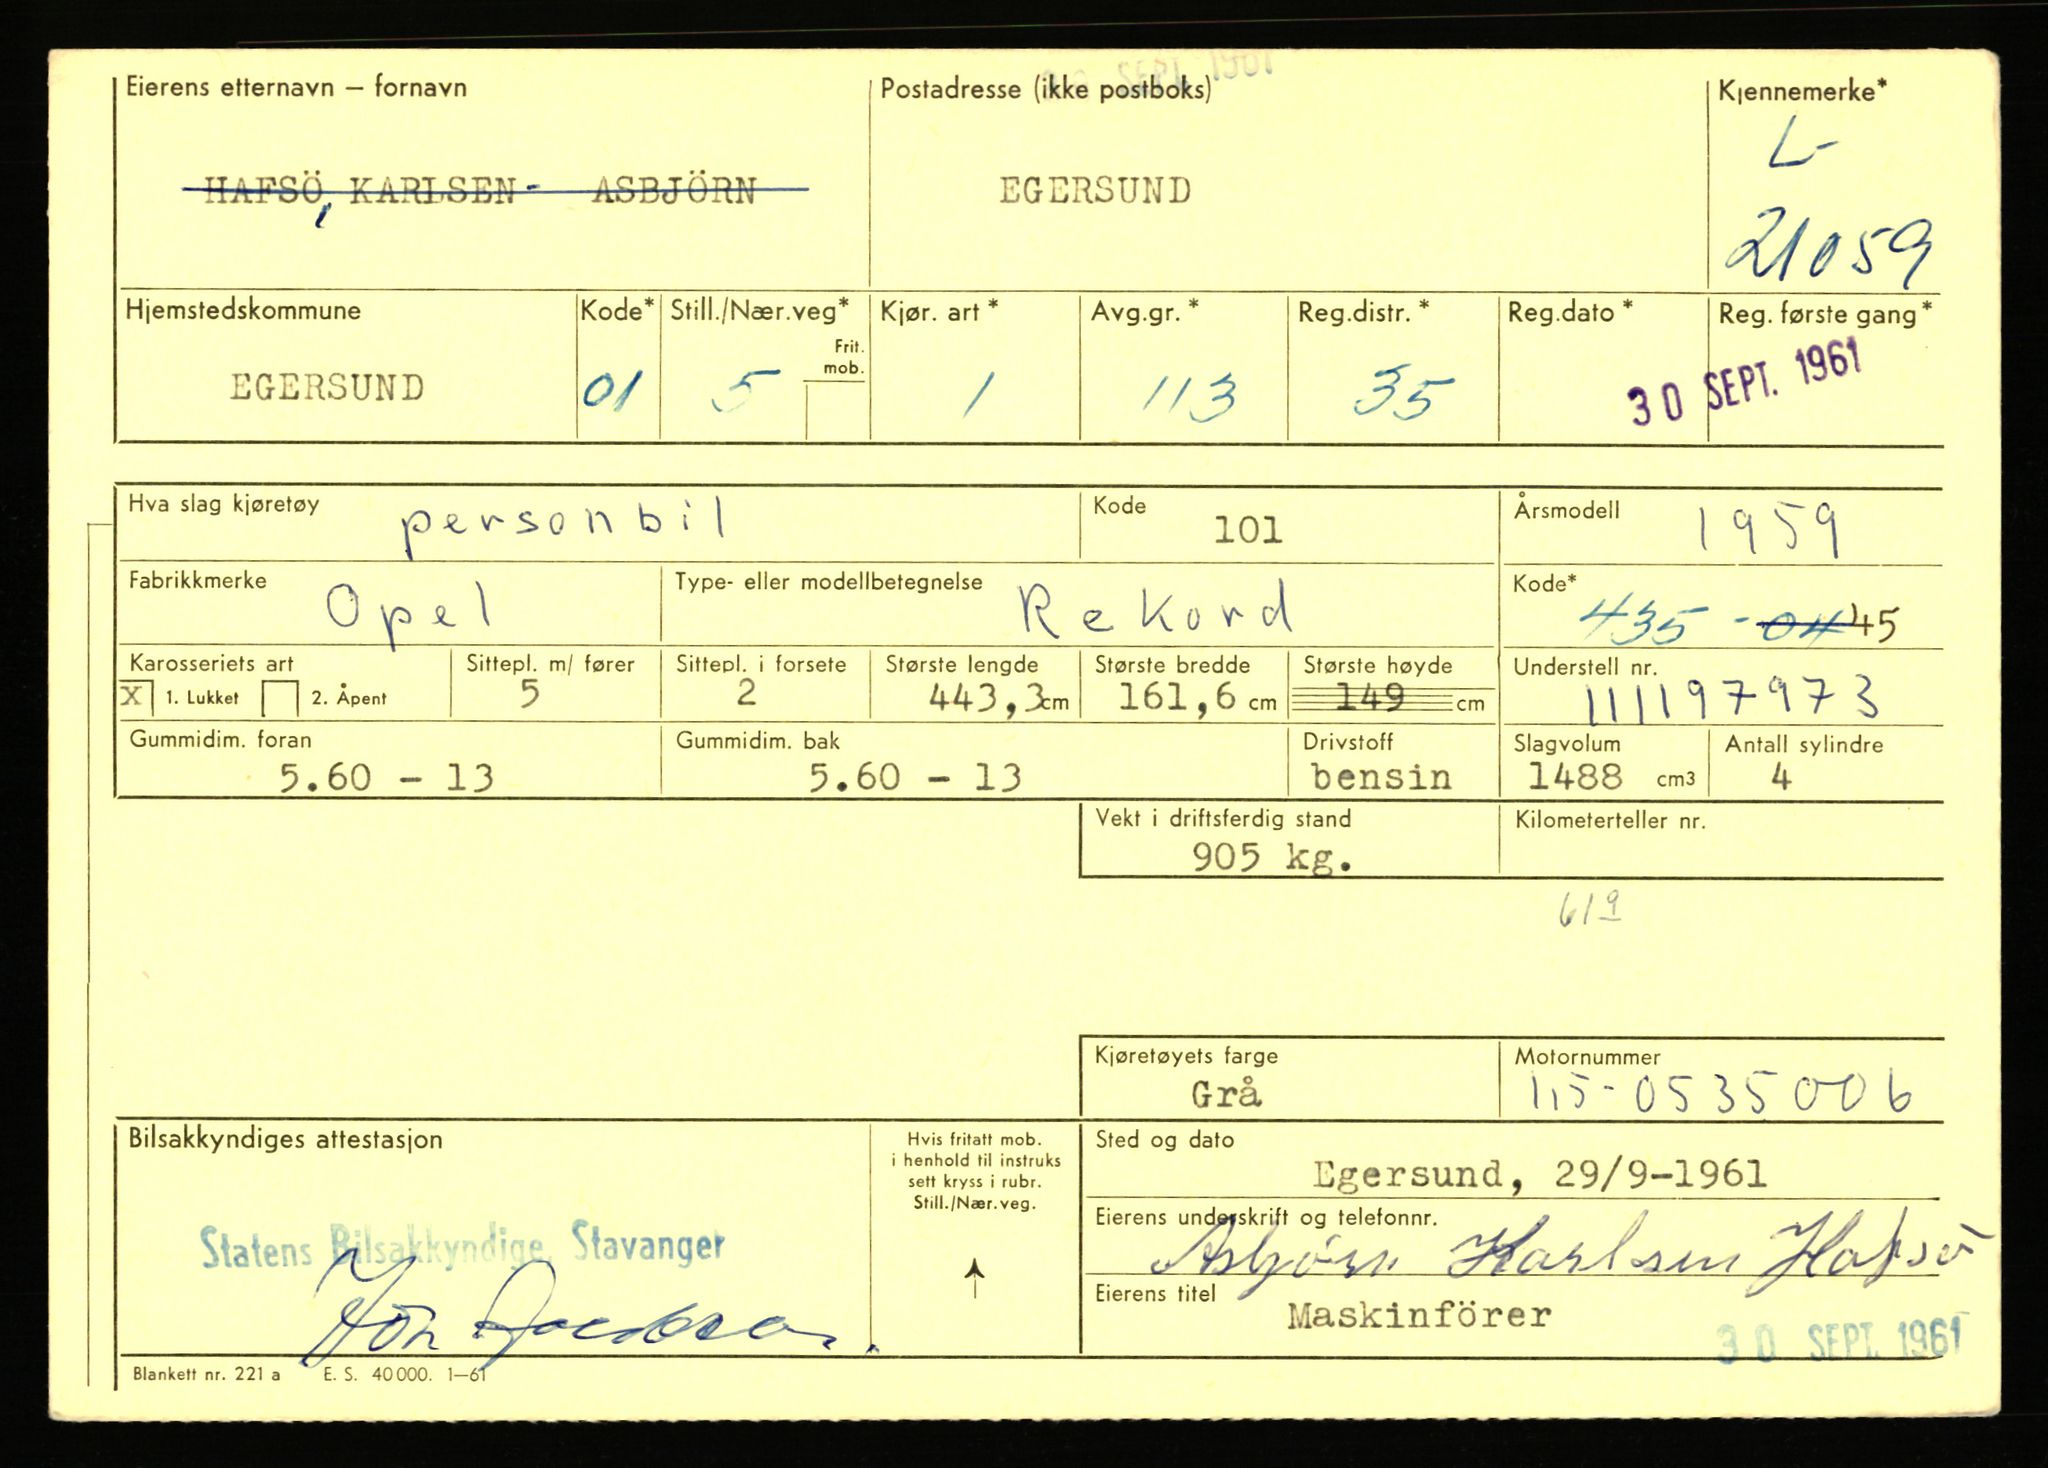 30 SEPT. 1961
Eierens etternavn – fornavn
Postadresse (ikke postboks)
Kjennemerke*
HAFSÖ, KARLSEN - ASBJÖRN
EGERSUND
L-
21059
Hjemstedskommune
Kode*
Still./Nær.veg*
Frit. mob.
Kjør. art *
Avg.gr. *
Reg.distr. *
Reg.dato *
Reg. første gang*
EGERSUND
01
5
1
113
35
30 SEPT. 1961
Hva slag kjøretøy
personbil
Kode
101
Årsmodell
1959
Fabrikkmerke
Opel
Type- eller modellbetegnelse
Rekord
Kode*
435 - 04 45
Karosseriets art
X 1. Lukket 2. Åpent
Sittepl. m/ fører
5
Sittepl. i forsete
2
Største lengde
443,3 cm
Største bredde
161,6 cm
Største høyde
149 cm
Understell nr.
111197973
Gummidim. foran
5.60 - 13
Gummidim. bak
5.60 - 13
Drivstoff
bensin
Slagvolum
1488 cm3
Antall sylindre
4
Vekt i driftsferdig stand
905 kg.
Kilometerteller nr.
619
Kjøretøyets farge
Grå
Motornummer
1,5-0535006
Bilsakkyndiges attestasjon
Statens Bilsakkyndige, Stavanger
Hvis fritatt mob.
i henhold til instruks
sett kryss i rubr.
Still./Nær.veg.
Sted og dato
Egersund, 29/9-1961
Eierens underskrift og telefonnr.
Asbjørn Karlsen Hafsö
Eierens titel
Maskinförer
30 SEPT. 1961
Blankett nr. 221 a E. S. 40000. 1–61